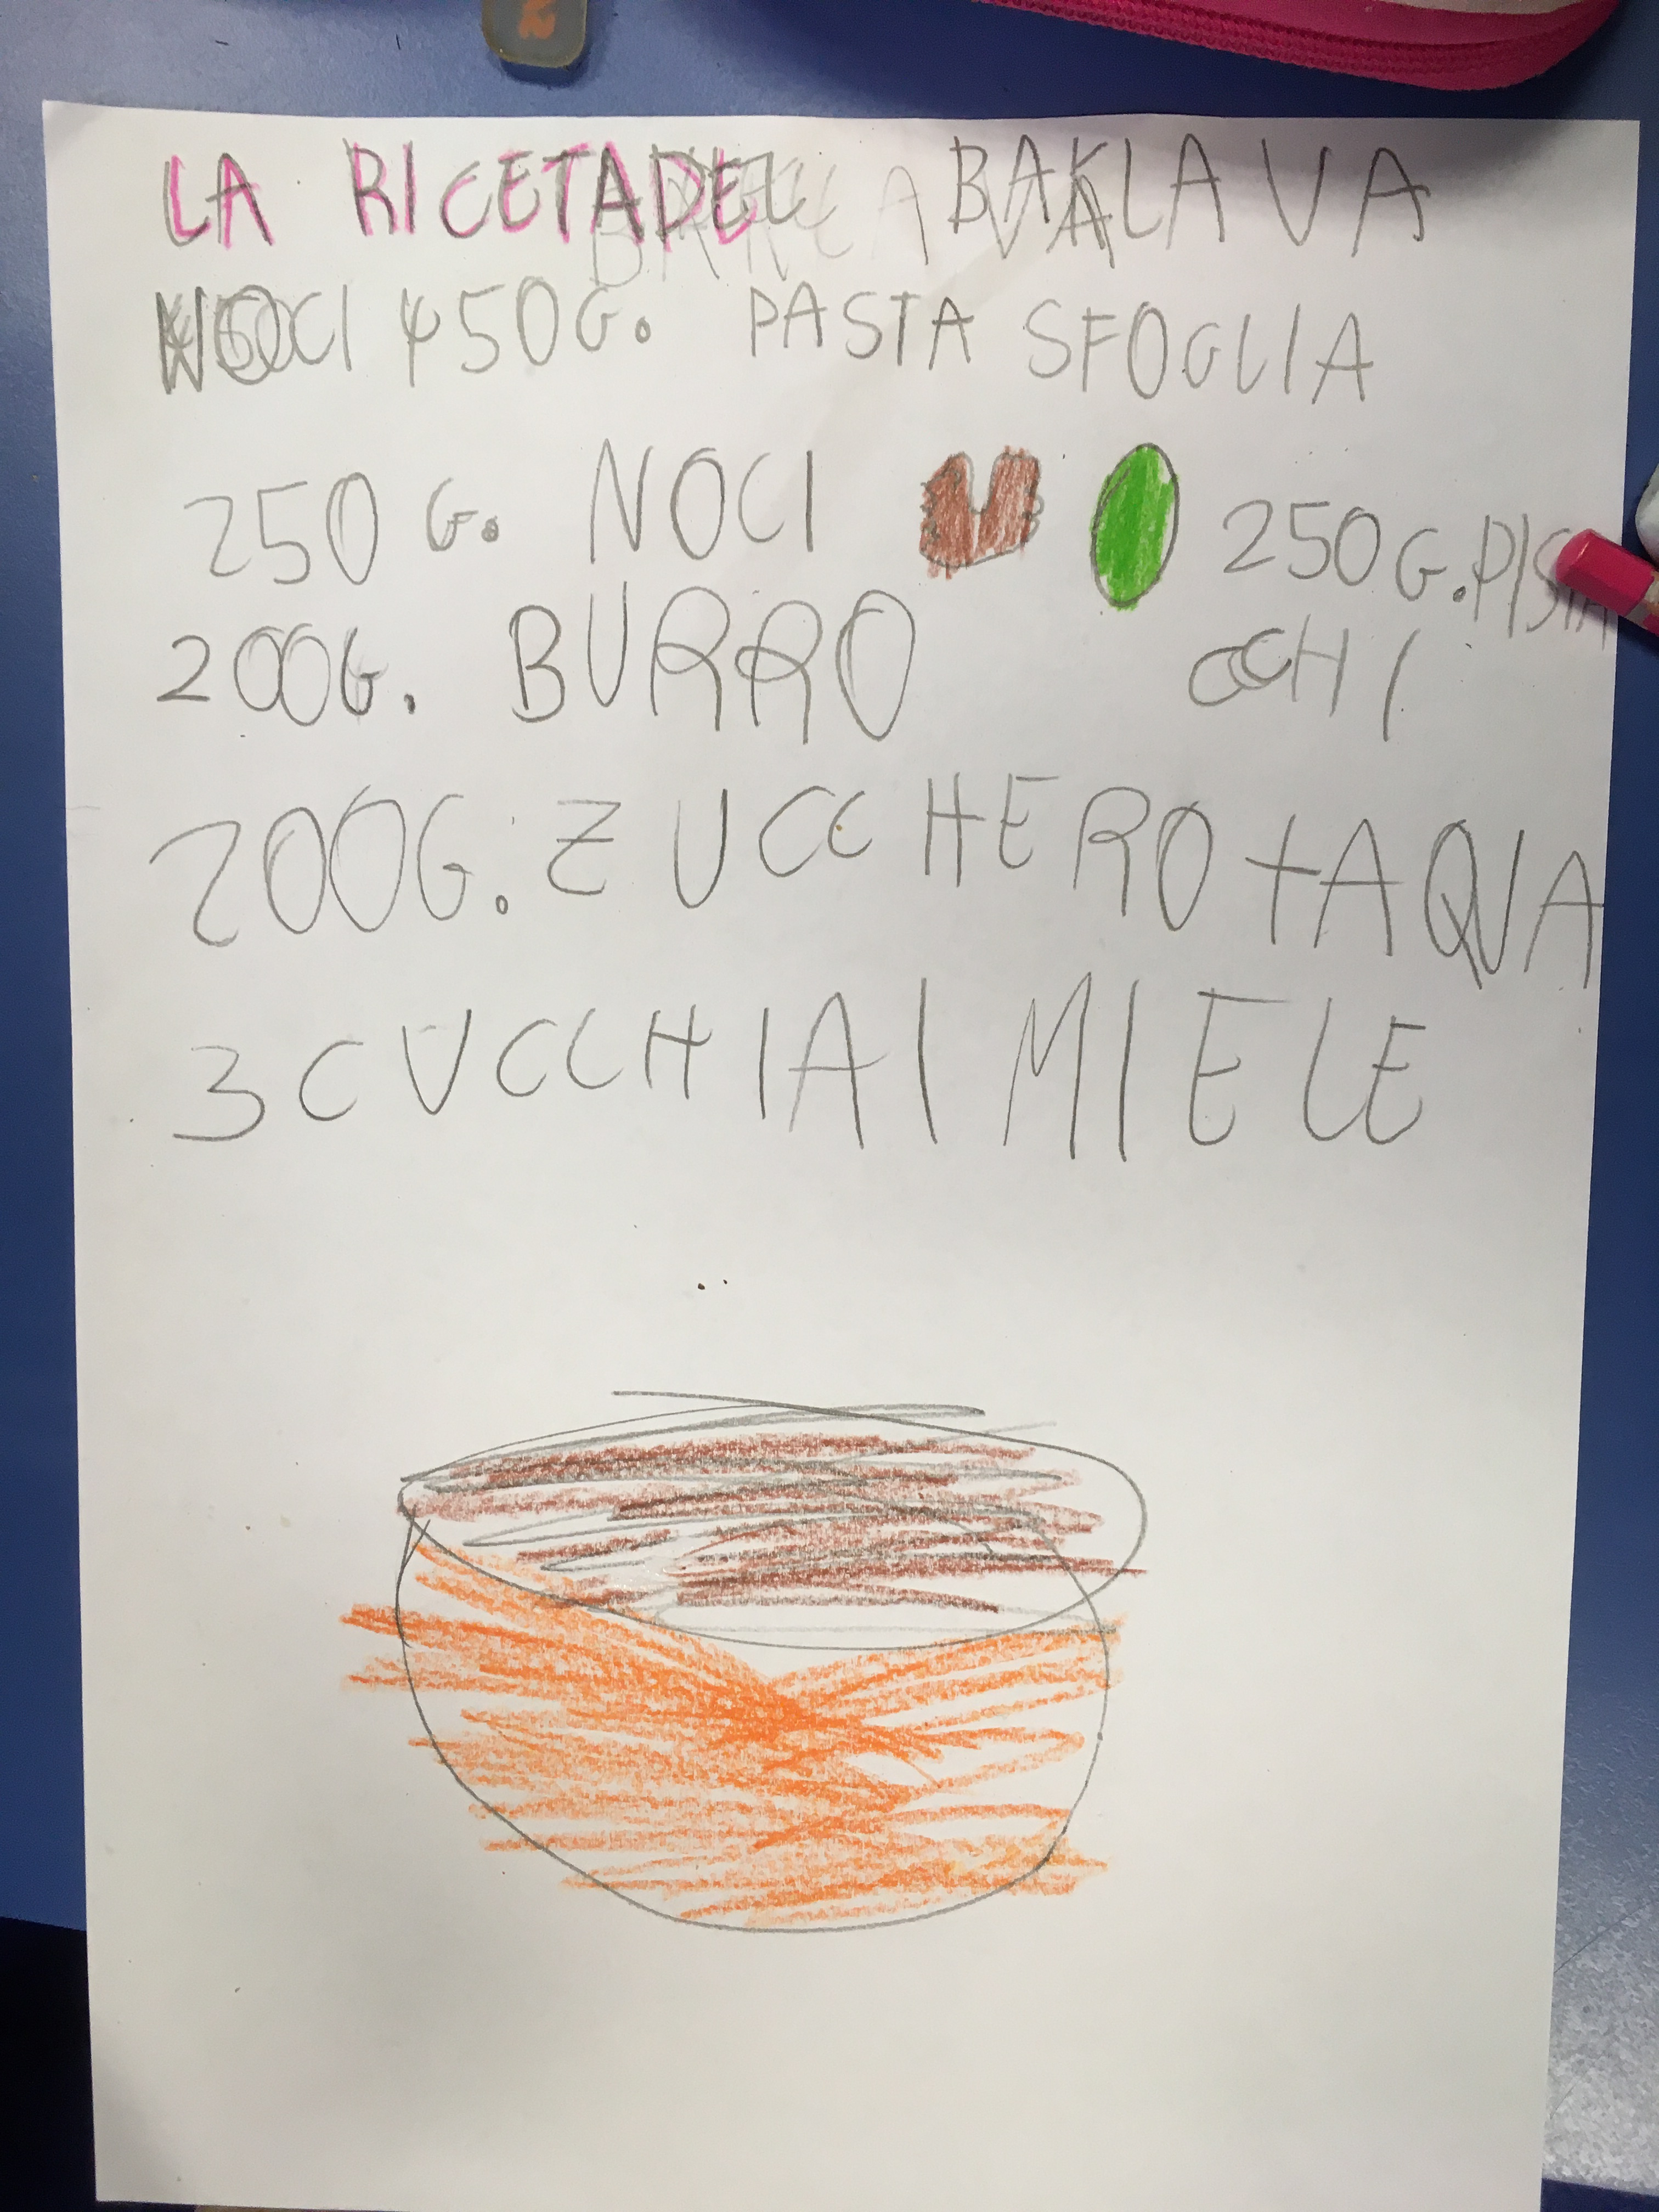 LA RICETADEL BAKLAVA
NOCI 450G. PASTA SFOGLIA
250 G. NOCI 250G. PISTA
CCHI
200G. BURRO
200G. ZUCCHERO + AQUA
3 CUCCHIAI MIELE